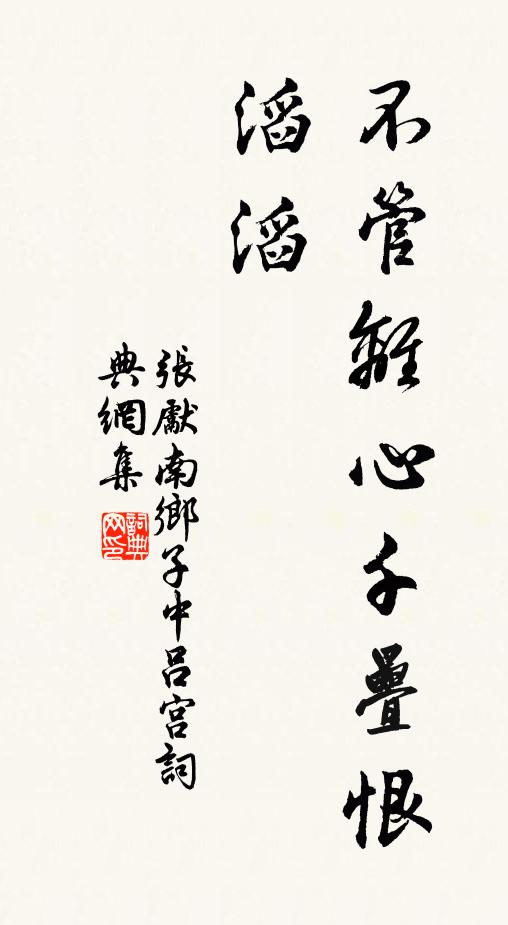 不管離心千疊恨
滔滔
張獻南鄉子中呂宮詞
典網集
詞典
网印